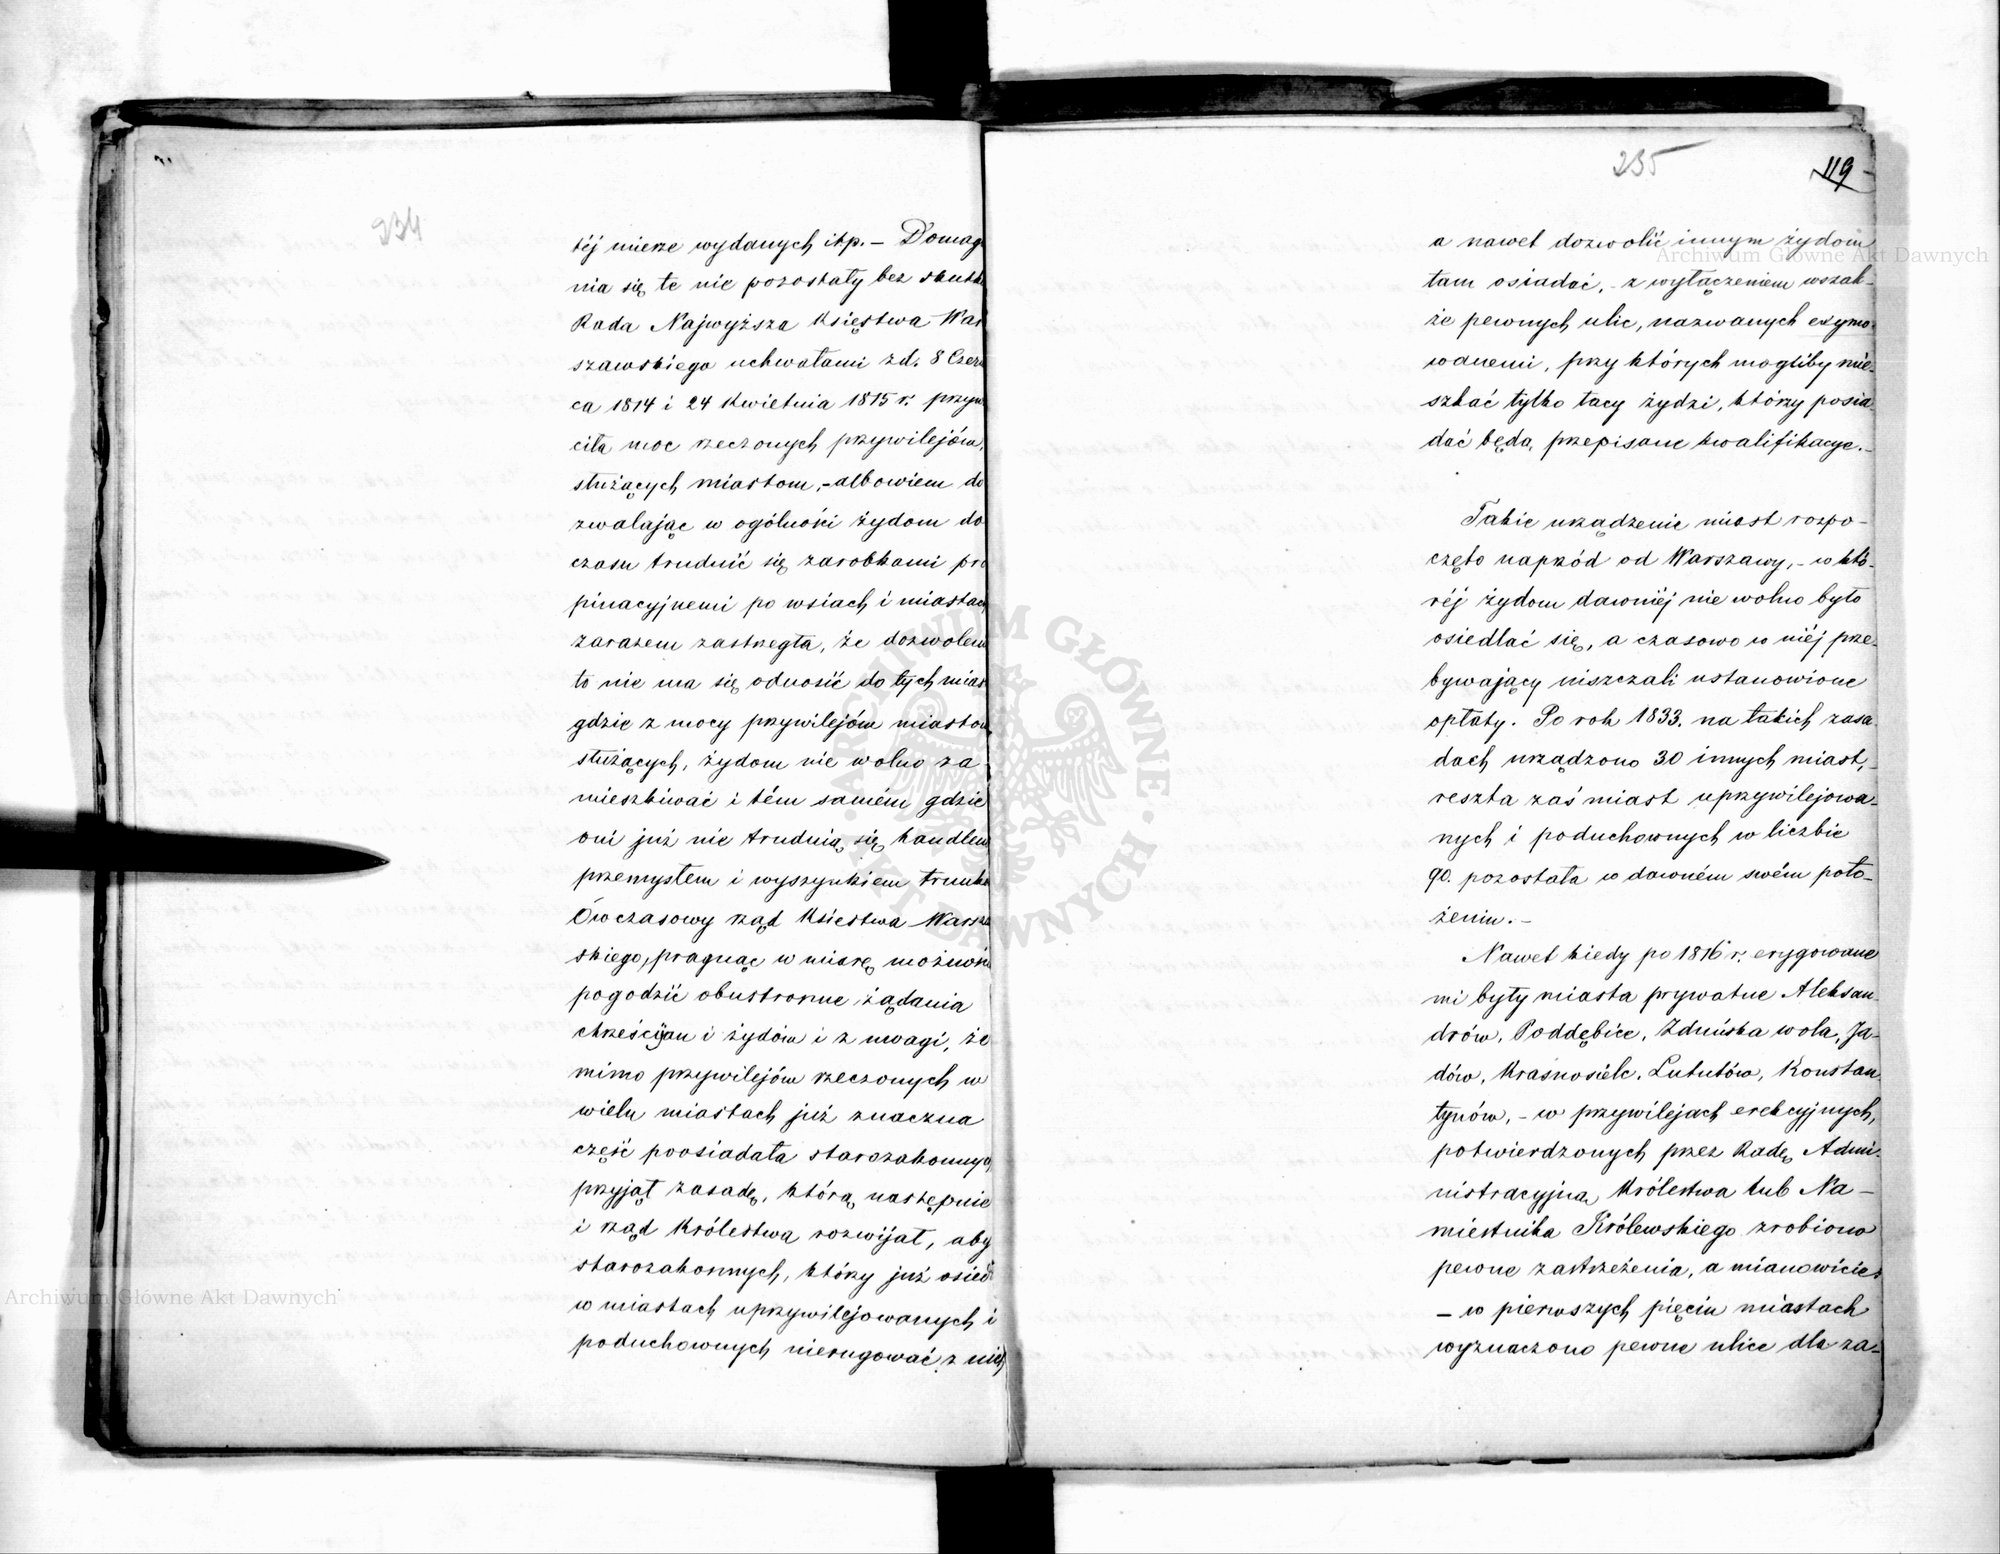 234
téj mierze wydanych itp. – Domag
nia się te nie pozostały bez skutk
Rada Najwyższa Księstwa War
szawskiego uchwałami z d. 8 Czerw
ca 1814 i 24 Kwietnia 1815 r. przyw
ciła moc rzeczonych przywilejów,
służących miastom, – albowiem do
zwalając w ogólności żydom do
czasu trudnić się zarobkami pro
pinacyjnemi po wsiach i miastach
zarazem zastrzegła, że dozwolenie
to nie ma się odnosić do tych miast
gdzie z mocy przywilejów miastom
służących, żydom nie wolno za-
mieszkiwać i tém samém gdzie
oni już nie trudnią się handlem
przemysłem i wyszynkiem trunkó
Ówczasowy rząd Księstwa Warsza
skiego, pragnąc w miarę możnośc
pogodzić obustronne żądania
chrześcijan i żydów i z uwagi, że
mimo przywilejów rzeczonych w
wielu miastach już znaczna
część poosiadała starozakonnych,
przyjął zasadę, którą następnie
i rząd Królestwa rozwijał, aby
starozakonnych, którzy już osied
w miastach uprzywilejowanych i
poduchownych nierugować z nich
235
119 –
a nawet dozwolić innym żydom
tam osiadać, – z wyłączeniem wszak-
że pewnych ulic, nazwanych exymo-
wanemi, przy których mogliby mie-
szkać tylko tacy żydzi, którzy posia-
dać będą, przepisane kwalifikacye. –
Takie urządzenie miast rozpo-
częto naprzód od Warszawy, – w któ-
réj żydom dawniéj nie wolno było
osiedlać się, a czasowo w niéj prze-
bywający uiszczali ustanowione
opłaty. Po rok 1833. na takich zasa-
dach urządzono 30 innych miast, –
reszta zaś miast uprzywilejowa-
nych i poduchownych w liczbie
90. pozostała w dawném swém poło-
żeniu. –
Nawet kiedy po 1816 r. erygowane
mi były miasta prywatne Aleksan-
drów, Poddębice, Zduńska wola, Ja-
dów, Krasnosielc, Lututów, Konstan-
tynów, – w przywilejach erekcyjnych,
potwierdzonych przez Radę Admi-
nistracyjną Królestwa lub Na-
miestnika Królewskiego zrobiono
pewne zastrzeżenia, a mianowicie:
– w pierwszych pięciu miastach
wyznaczono pewne ulice dla za-
Archiwum Główne Akt Dawnych
ARCHIWUM GŁÓWNE AKT DAWNYCH
Archiwum Główne Akt Dawnych